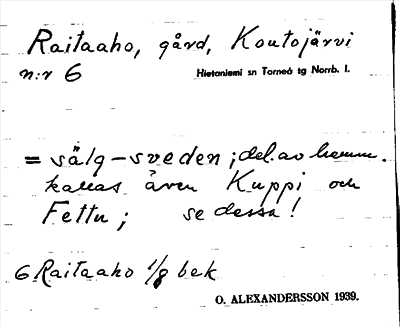 Raitaaho, gård, Koutojärvi
n:r 6
Hietaniemi sn Torneå tg Norrb. l.
= sälg-sveden; del. av hemm.
kallas även Kuppi och
Fettu; se dessa!
6 Raitaaho 1/8 bek
O. ALEXANDERSSON 1939.